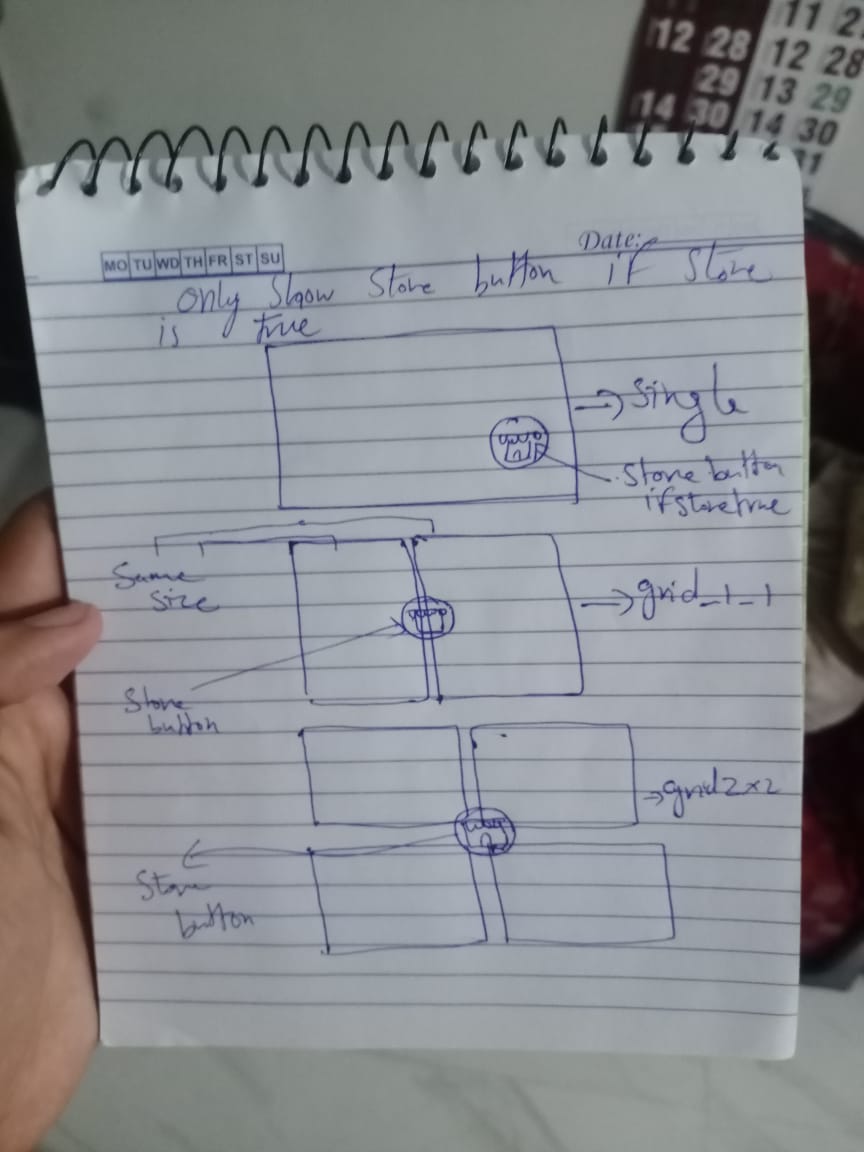 11 2
12 28 12 28
29 13 29
14 30 14 30
31
Date:
MO TU WD TH FR ST SU
only Show Store button if Store
is true
Single
Store button
if store true
Same
size
grid_1_1
Store
button
grid 2x2
Store
button